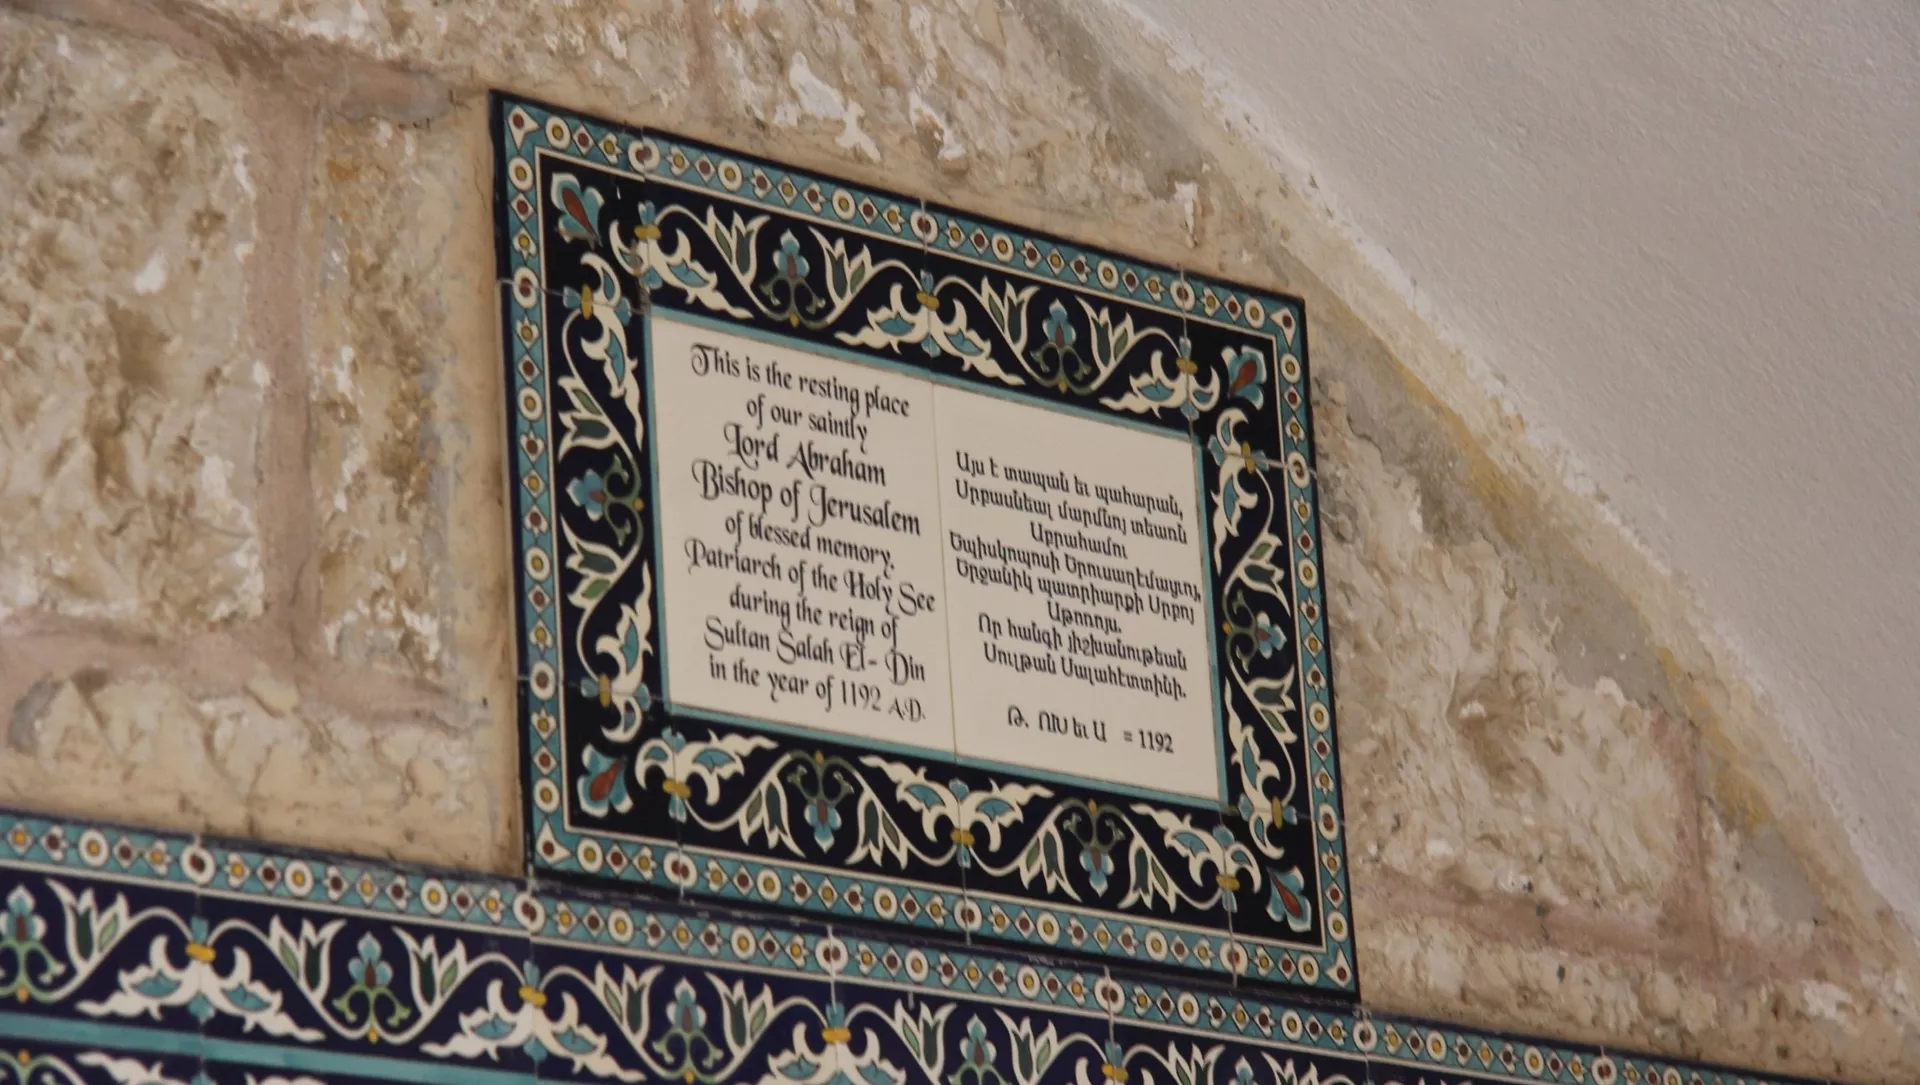 This is the resting place
of our saintly
Lord Abraham
Bishop of Jerusalem
of blessed memory,
Patriarch of the Holy See
during the reign of
Sultan Salah El- Din
in the year of 1192 A.D.
Այս է տապան եւ պահարան,
Սրբասնեալ մարմնոյ տեառն
Աբրահամու
Եպիսկոպոսի Երուսաղէմացւոյ,
Երջանիկ պատրիարքի Սրբոյ
Աթոռոյս.
Որ հանգի յիշխանութեան
Սուլթան Սալահէտտինի.
Թ. ՈԽ եւ Ա = 1192